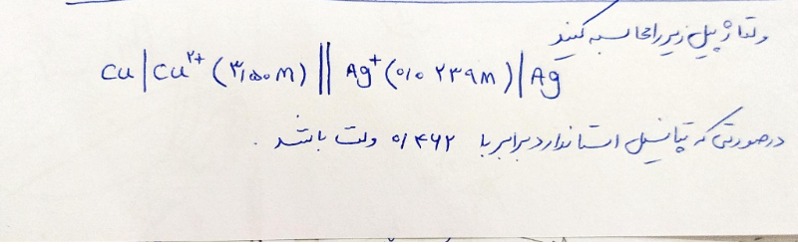 ولتاژ پیل زیر را محاسبه کنید
Cu | Cu²⁺ (۳/۵۰ M) || Ag⁺ (۰/۰۲۳۹ M) | Ag
در صورتی که پتانسیل استاندارد برابر با ۰/۴۶۲ ولت باشد .